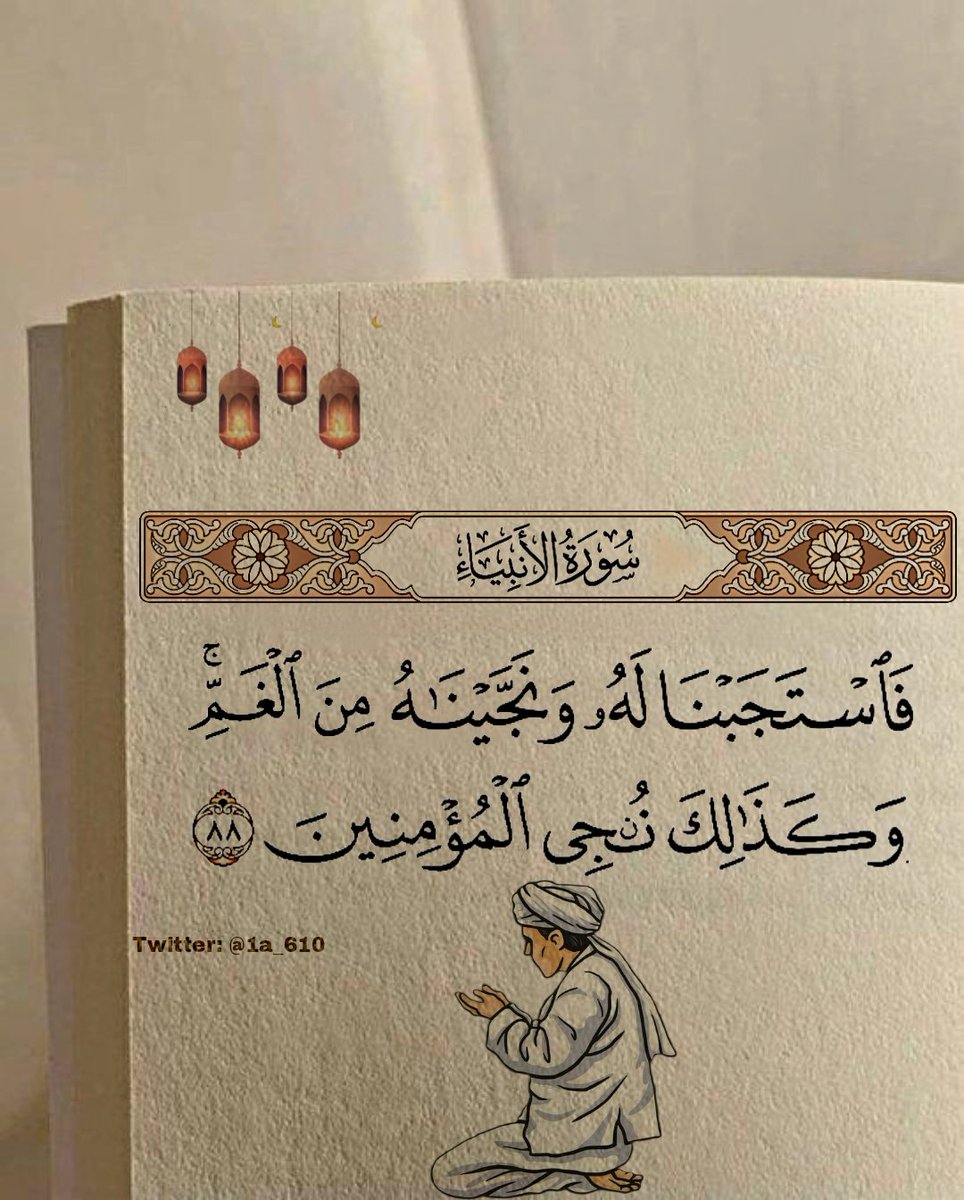 سُورَةُ الأَنبِيَاءِ
فَٱسْتَجَبْنَا لَهُۥ وَنَجَّيْنَـٰهُ مِنَ ٱلْغَمِّ ۚ
وَكَذَٰلِكَ نُـۨجِى ٱلْمُؤْمِنِينَ ٨٨
Twitter: @1a_610